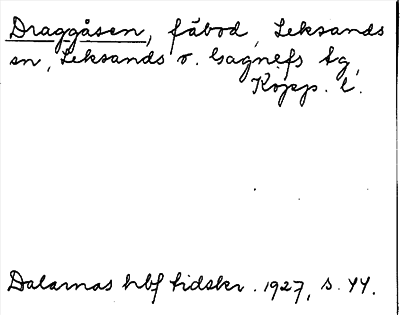 Draggåsen, fäbod, Leksands
sn, Leksands o. Gagnefs tg,
Kopp. l.
Dalarnas hbf tidskr. 1927, s. 44.